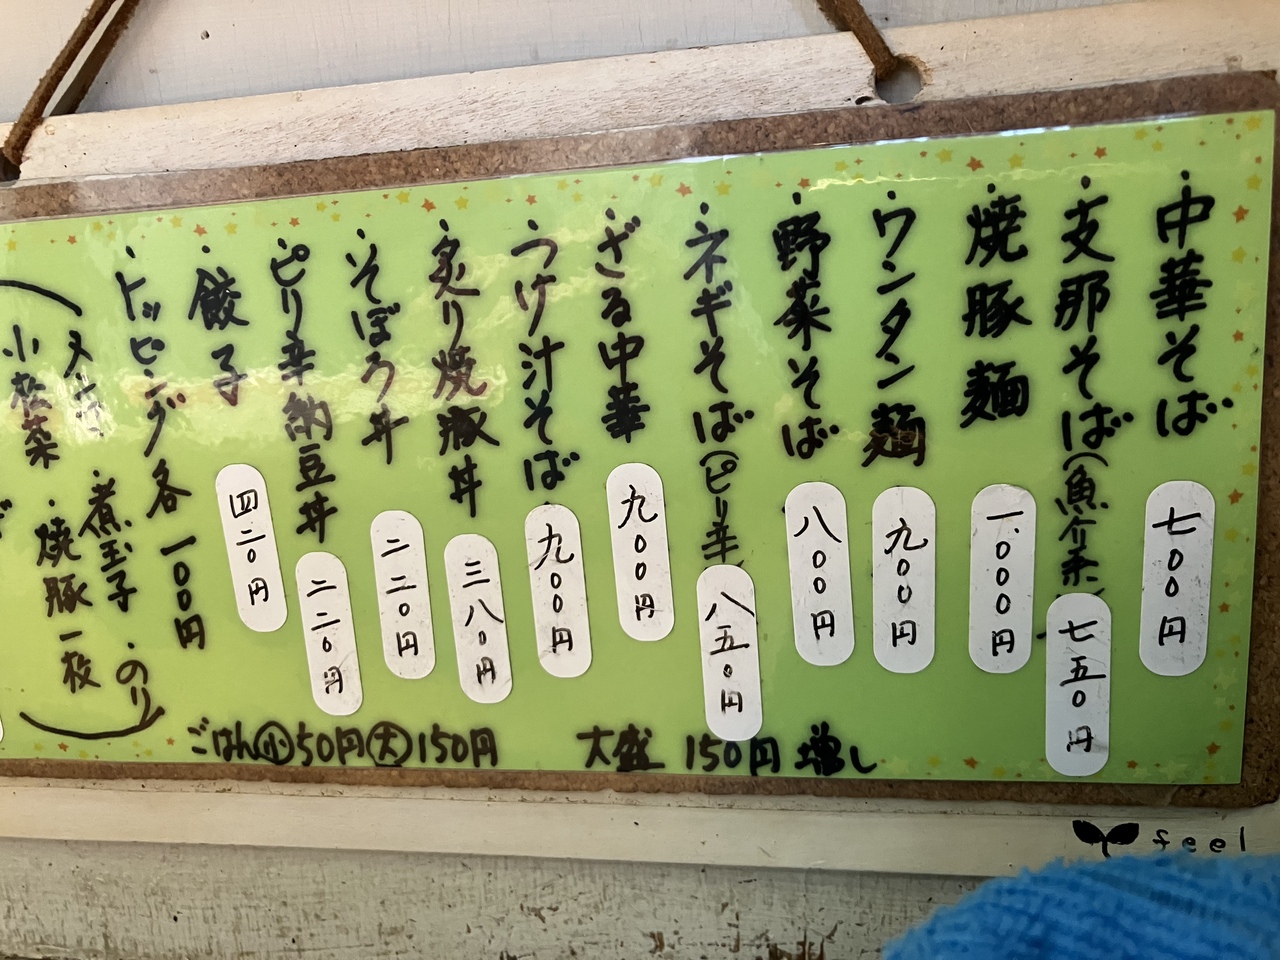 ・中華そば 七〇〇円
・支那そば(魚介系) 七五〇円
・焼豚麺 一、〇〇〇円
・ウンタン麺 九〇〇円
・野菜そば 八〇〇円
・ネギそば(ピリ辛) 八五〇円
・ざる中華 九〇〇円
・つけ汁そば 九〇〇円
・炙り焼豚丼 三八〇円
・そぼろ丼 二二〇円
・ピリ辛納豆丼 二二〇円
・餃子 四二〇円
・トッピング各一〇〇円
メンマ ・煮玉子 ・のり
小松菜 ・焼豚一枚
大盛 150円増し
ごはん小50円大150円
feel